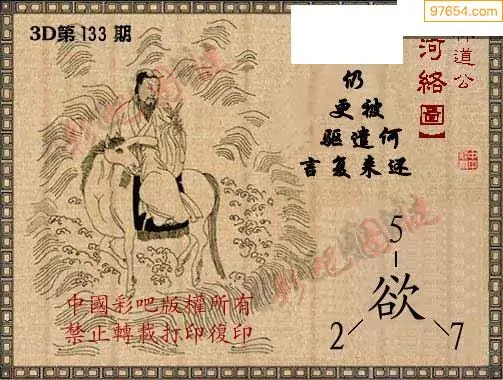 97654.com
3D第 133 期
道公
河絡圖】
仍
更被
驱遣何
言复来还
5
欲
2 7
中國彩吧版權所有
禁止轉載打印復印